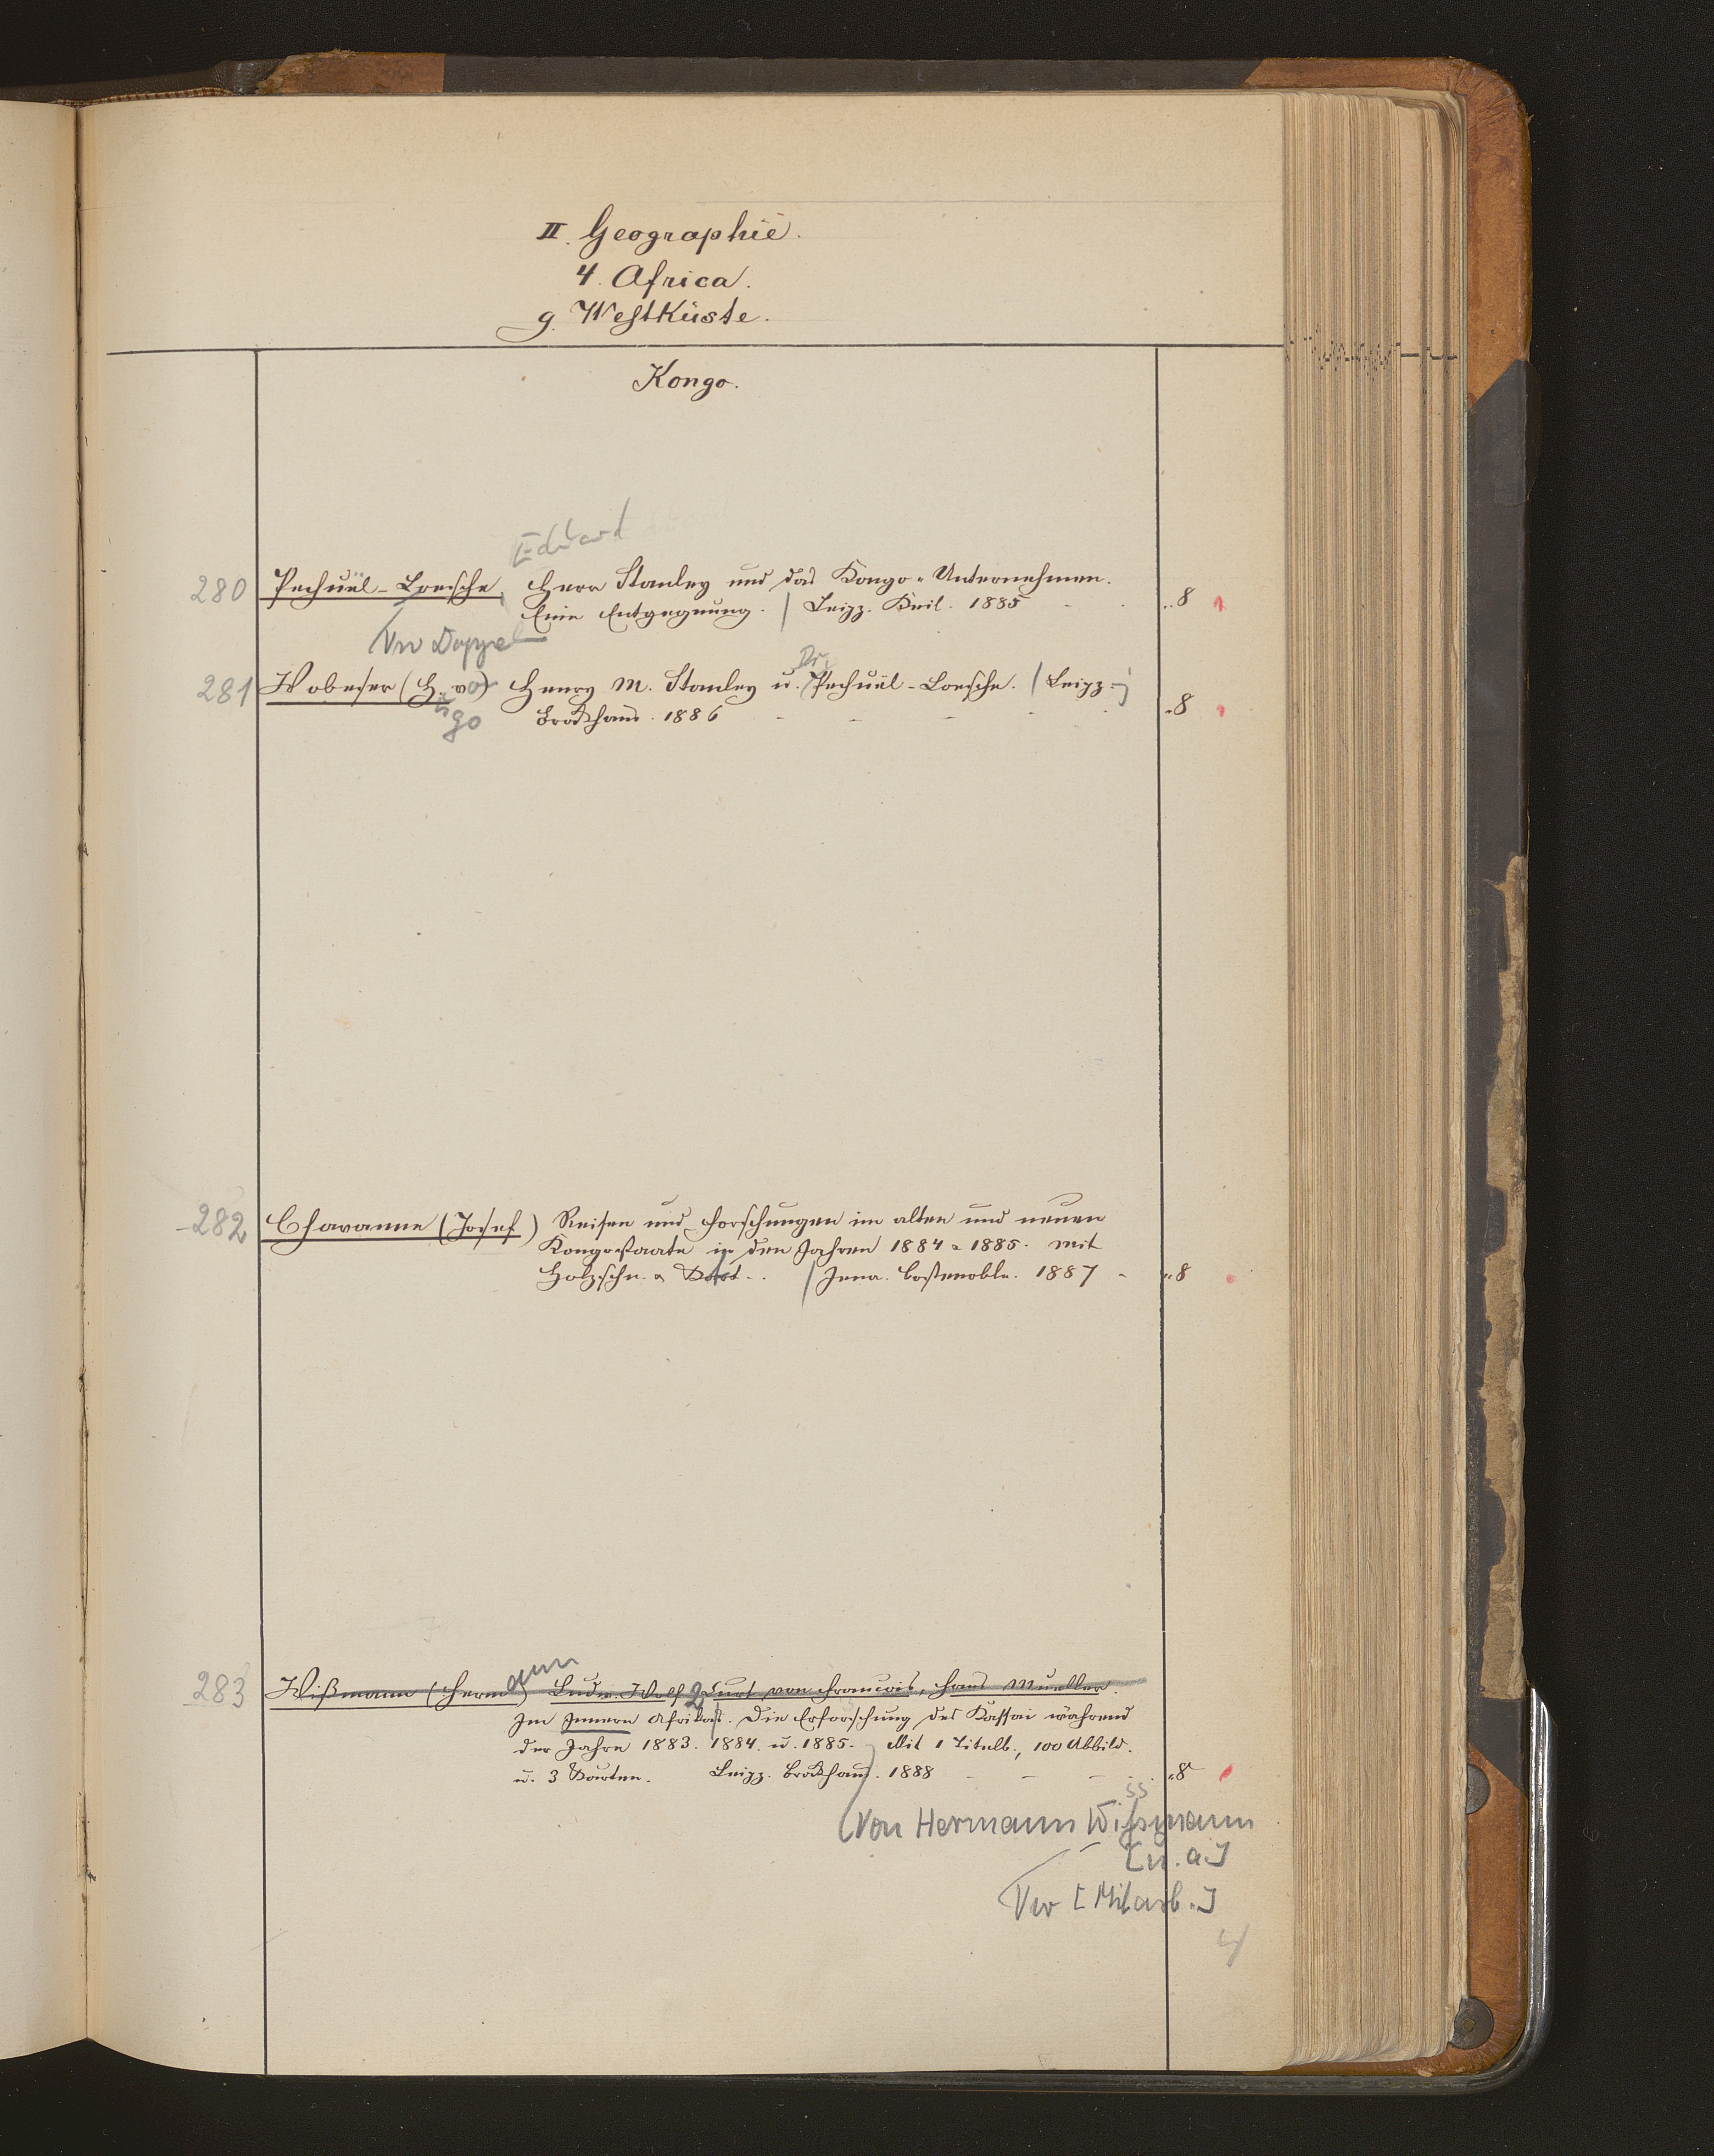 II. Geographie.
4. Africa.
g. Westküste.
Kongo.
Eduard
280 Pechuël-Loesche, Herr Stanley und das Kongo-Unternehmen.
Eine Entgegnung. / Leipz. Keil. 1885 - - „8
Vw Doppel
Dr.
281 Wobeser (H. v.) Henry M. Stanley u. Pechuël-Loesche. / Leipz.
ugo Brockhaus. 1886 - - - - - „8
282 Chavanne (Josef) Reisen und Forschungen im alten und neuen
Kongostaate in den Jahren 1884 & 1885. Mit
Holzschn. & / Jena. Costenoble. 1887 - „8
ann
283 Wißmann (Herm.) Ludw. Wolf, Curt von Francois, Hans Mueller.
Im Innern Afrikas. Die Erforschung des Kassai während
der Jahre 1883. 1884. u. 1885. Mit 1 Titelb., 100 Abbild.
u. 3 Karten. Leipz. Brockhaus. 1888 - - - - „8
ss
(Von Hermann Wißmann
[u. a.]
Vw [Mitarb.]
4